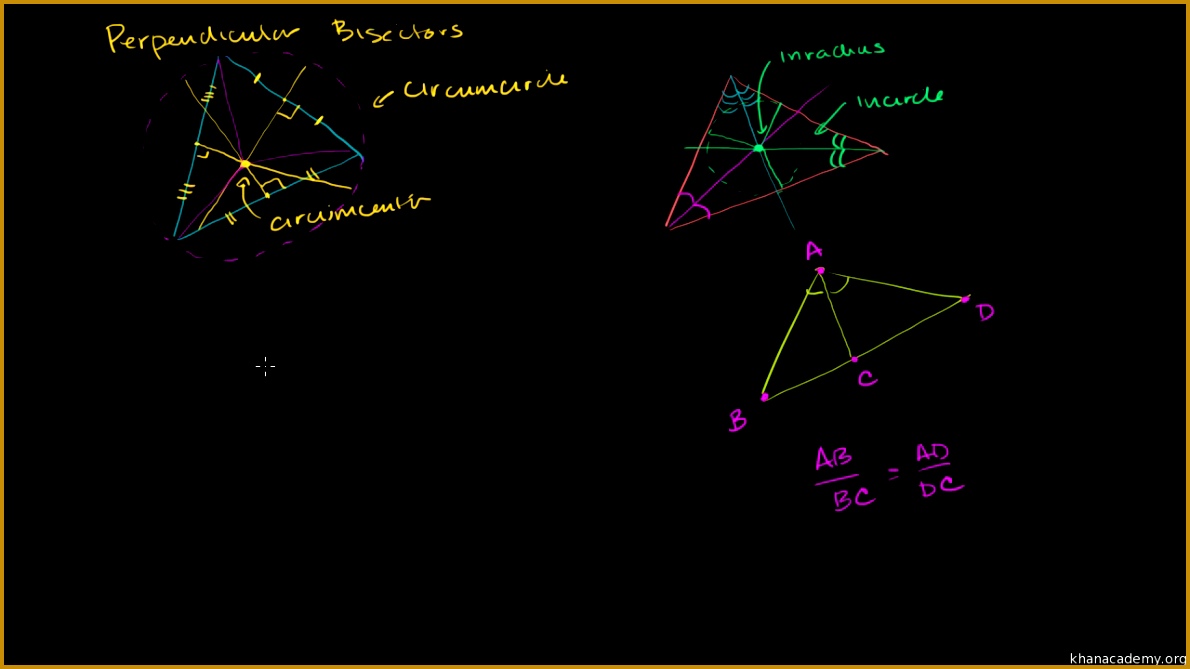 Perpendicular Bisectors
Circumcircle
Circumcenter
inradius
incircle
A
D
C
B
AB/BC = AD/DC
khanacademy.org